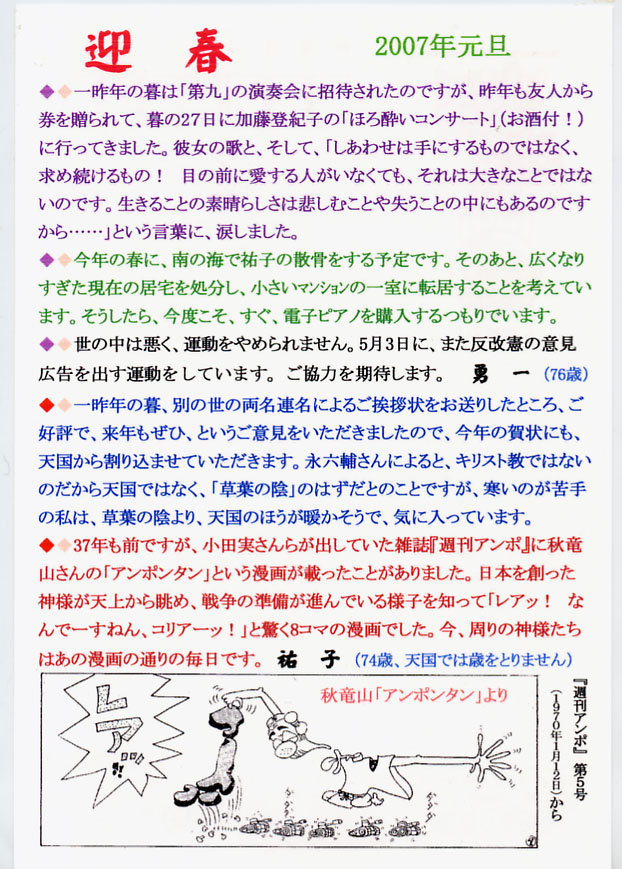 迎春
2007年元旦
◆◆一昨年の暮は「第九」の演奏会に招待されたのですが、昨年も友人から
券を贈られて、暮の27日に加藤登紀子の「ほろ酔いコンサート」(お酒付!)
に行ってきました。彼女の歌と、そして、「しあわせは手にするものではなく、
求め続けるもの! 目の前に愛する人がいなくても、それは大きなことではな
いのです。生きることの素晴らしさは悲しむことや失うことの中にもあるのです
から……」という言葉に、涙しました。
◆◆今年の春に、南の海で祐子の散骨をする予定です。そのあと、広くなり
すぎた現在の居宅を処分し、小さいマンションの一室に転居することを考えてい
ます。そうしたら、今度こそ、すぐ、電子ピアノを購入するつもりでいます。
◆◆世の中は悪く、運動をやめられません。5月3日に、また反改憲の意見
広告を出す運動をしています。ご協力を期待します。 勇 一 (76歳)
◆◆一昨年の暮、別の世の両名連名によるご挨拶状をお送りしたところ、ご
好評で、来年もぜひ、というご意見をいただきましたので、今年の賀状にも、
天国から割り込ませていただきます。永六輔さんによると、キリスト教ではない
のだから天国ではなく、「草葉の陰」のはずだとのことですが、寒いのが苦手
の私は、草葉の陰より、天国のほうが暖かそうで、気に入っています。
◆◆37年も前ですが、小田実さんらが出していた雑誌『週刊アンポ』に秋竜
山さんの「アンポンタン」という漫画が載ったことがありました。日本を創った
神様が天上から眺め、戦争の準備が進んでいる様子を知って「レアッ! な
んでーすねん、コリアーッ!」と驚く8コマの漫画でした。今、周りの神様たち
はあの漫画の通りの毎日です。 祐 子 (74歳、天国では歳をとりません)
秋竜山「アンポンタン」より
レアッッ!!
『週刊アンポ』第5号
(1970年1月12日)から